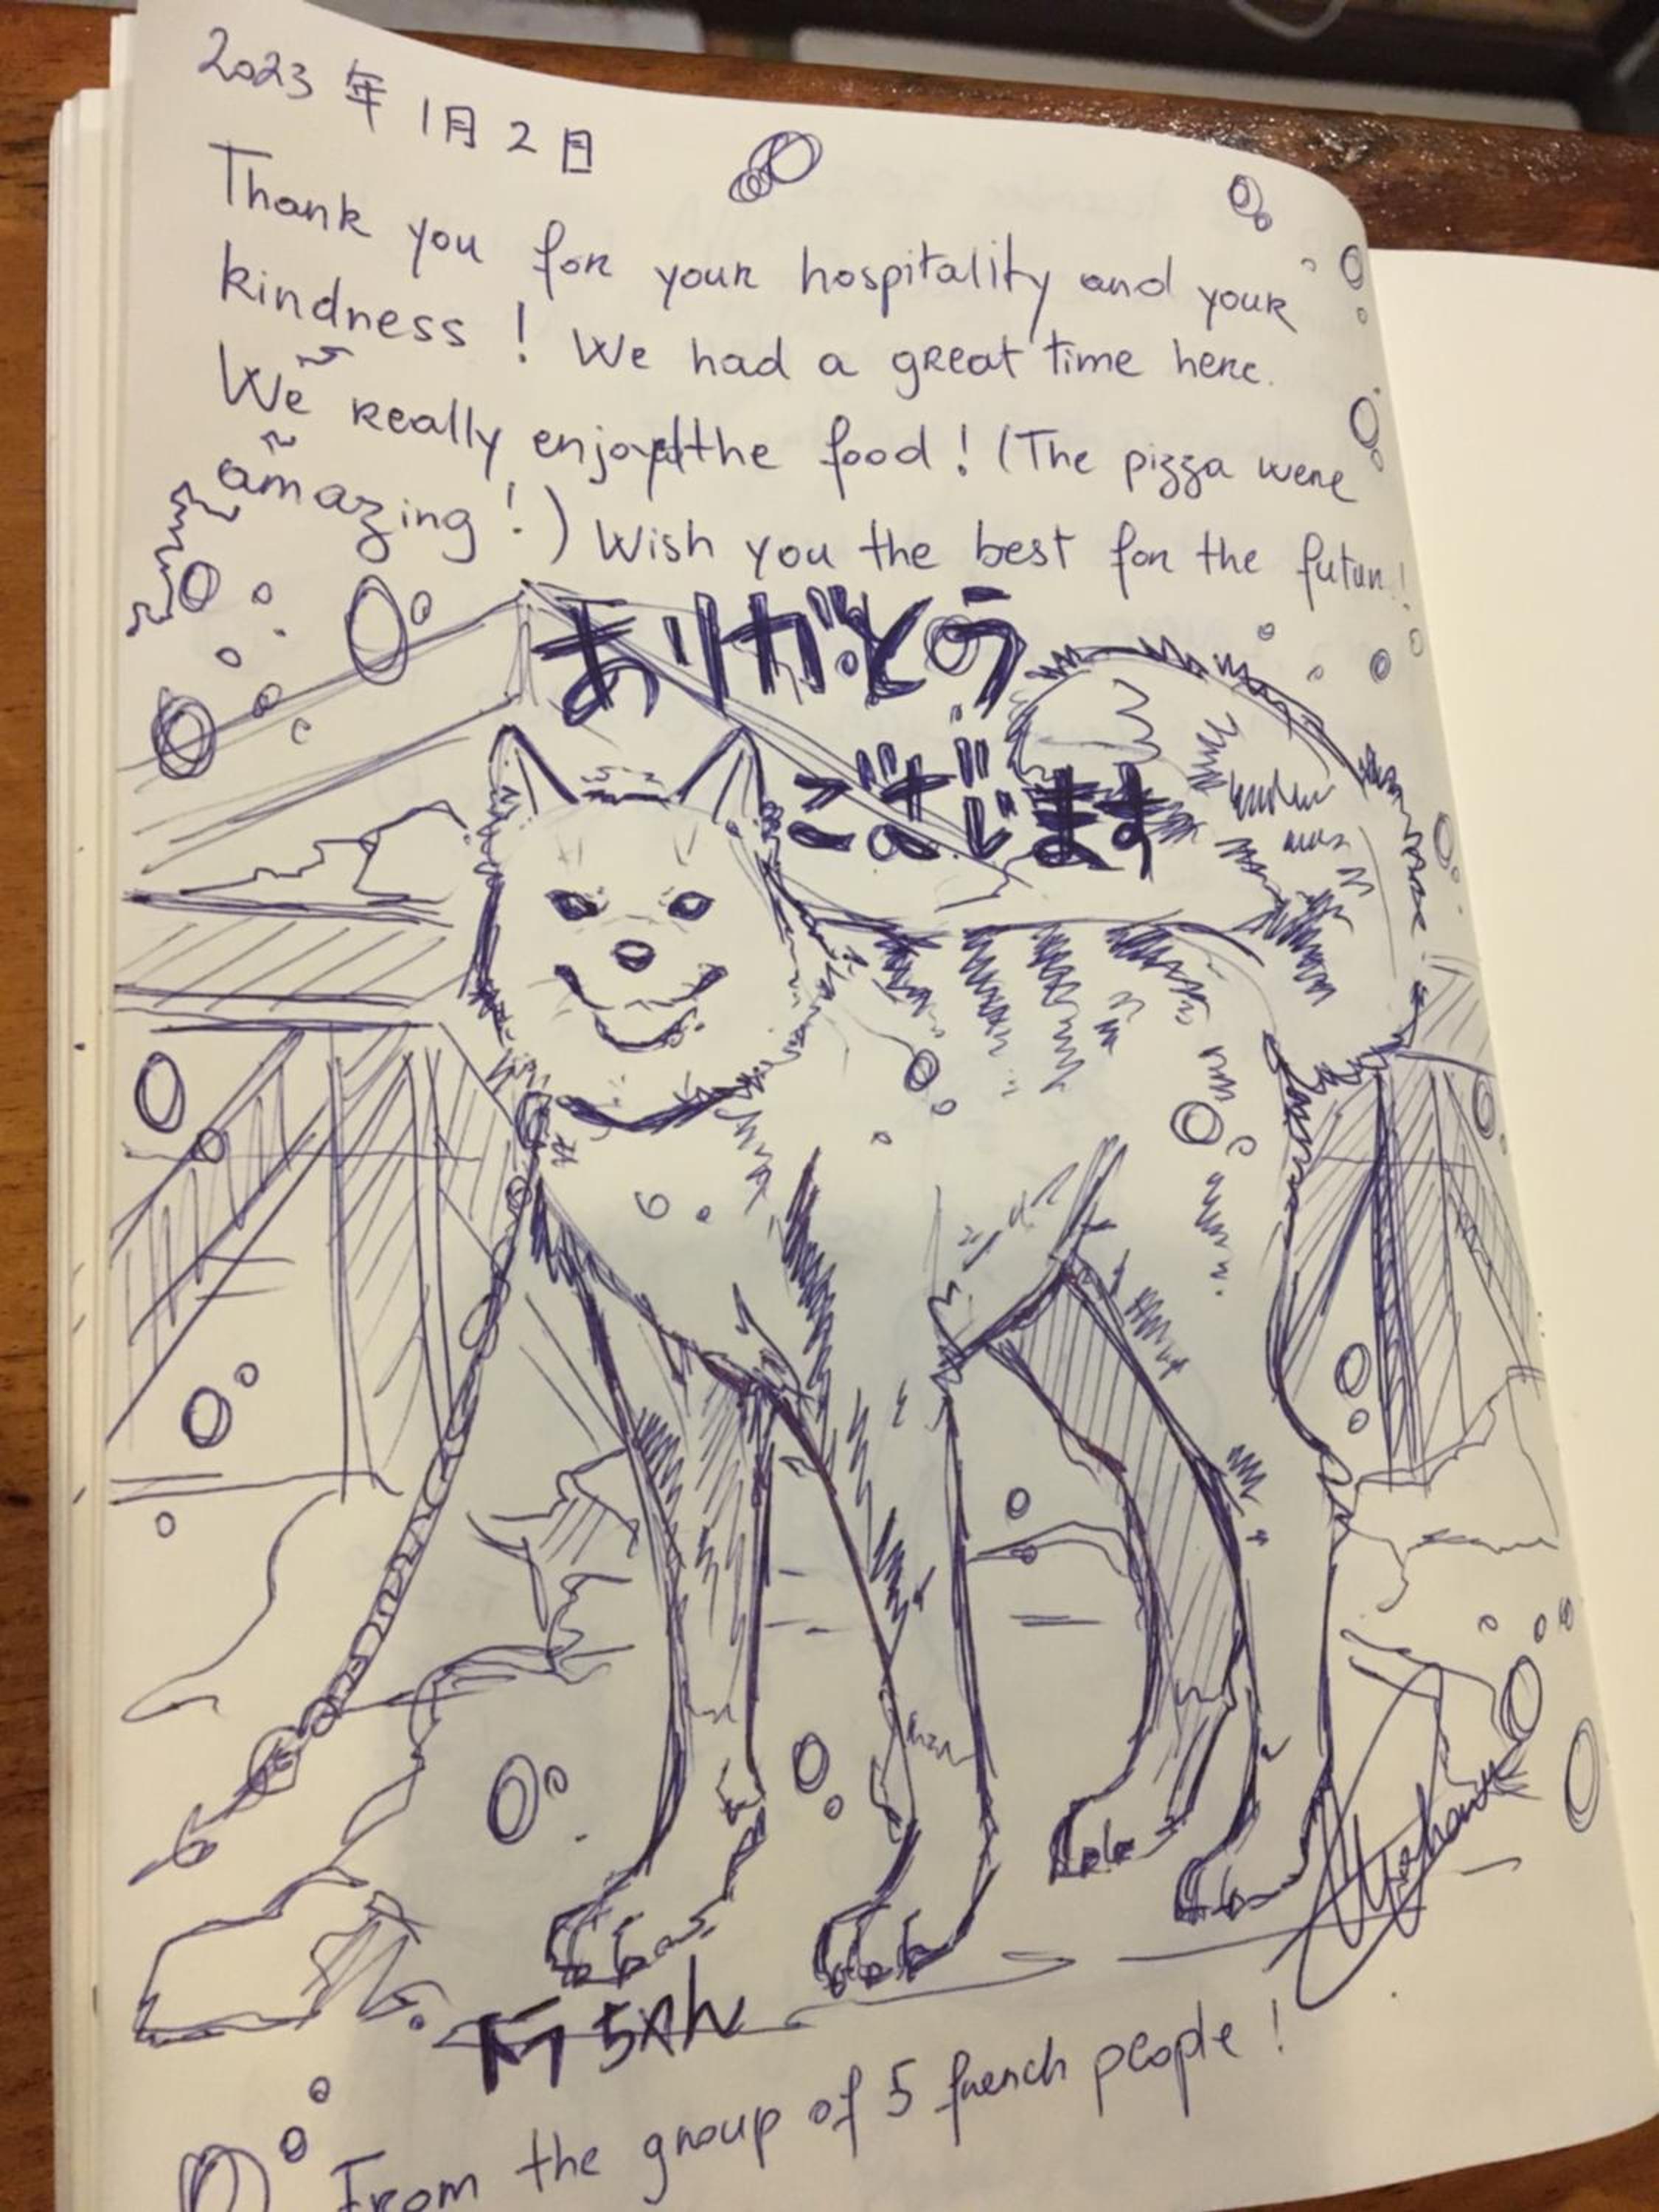 2023年1月2日
Thank you for your hospitality and your
kindness ! We had a great time here.
We really enjoyed the food ! (The pizza were
amazing !) Wish you the best for the futur !
ありがとう
ございます
ちゃん
From the group of 5 french people !